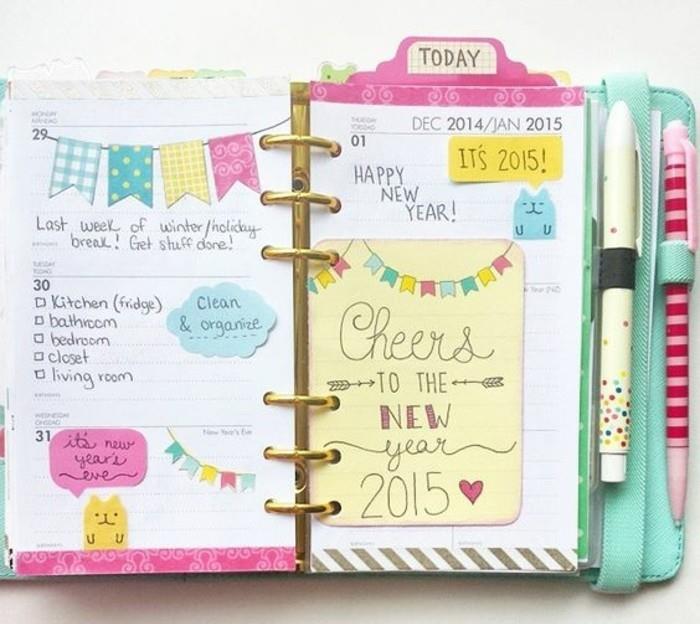 MONDAY
MÅNDAG
29
Last week of winter/holiday
break! Get stuff done!
TUESDAY
TISDAG
30
Kitchen (fridge)
bathroom
bedroom
closet
living room
Clean
& organize
WEDNESDAY
ONSDAG
31
New Year's Eve
it's new
year's
eve
TODAY
THURSDAY
TORSDAG
DEC 2014/JAN 2015
01
IT'S 2015!
HAPPY
NEW
YEAR!
Cheers
TO THE
NEW
year
2015